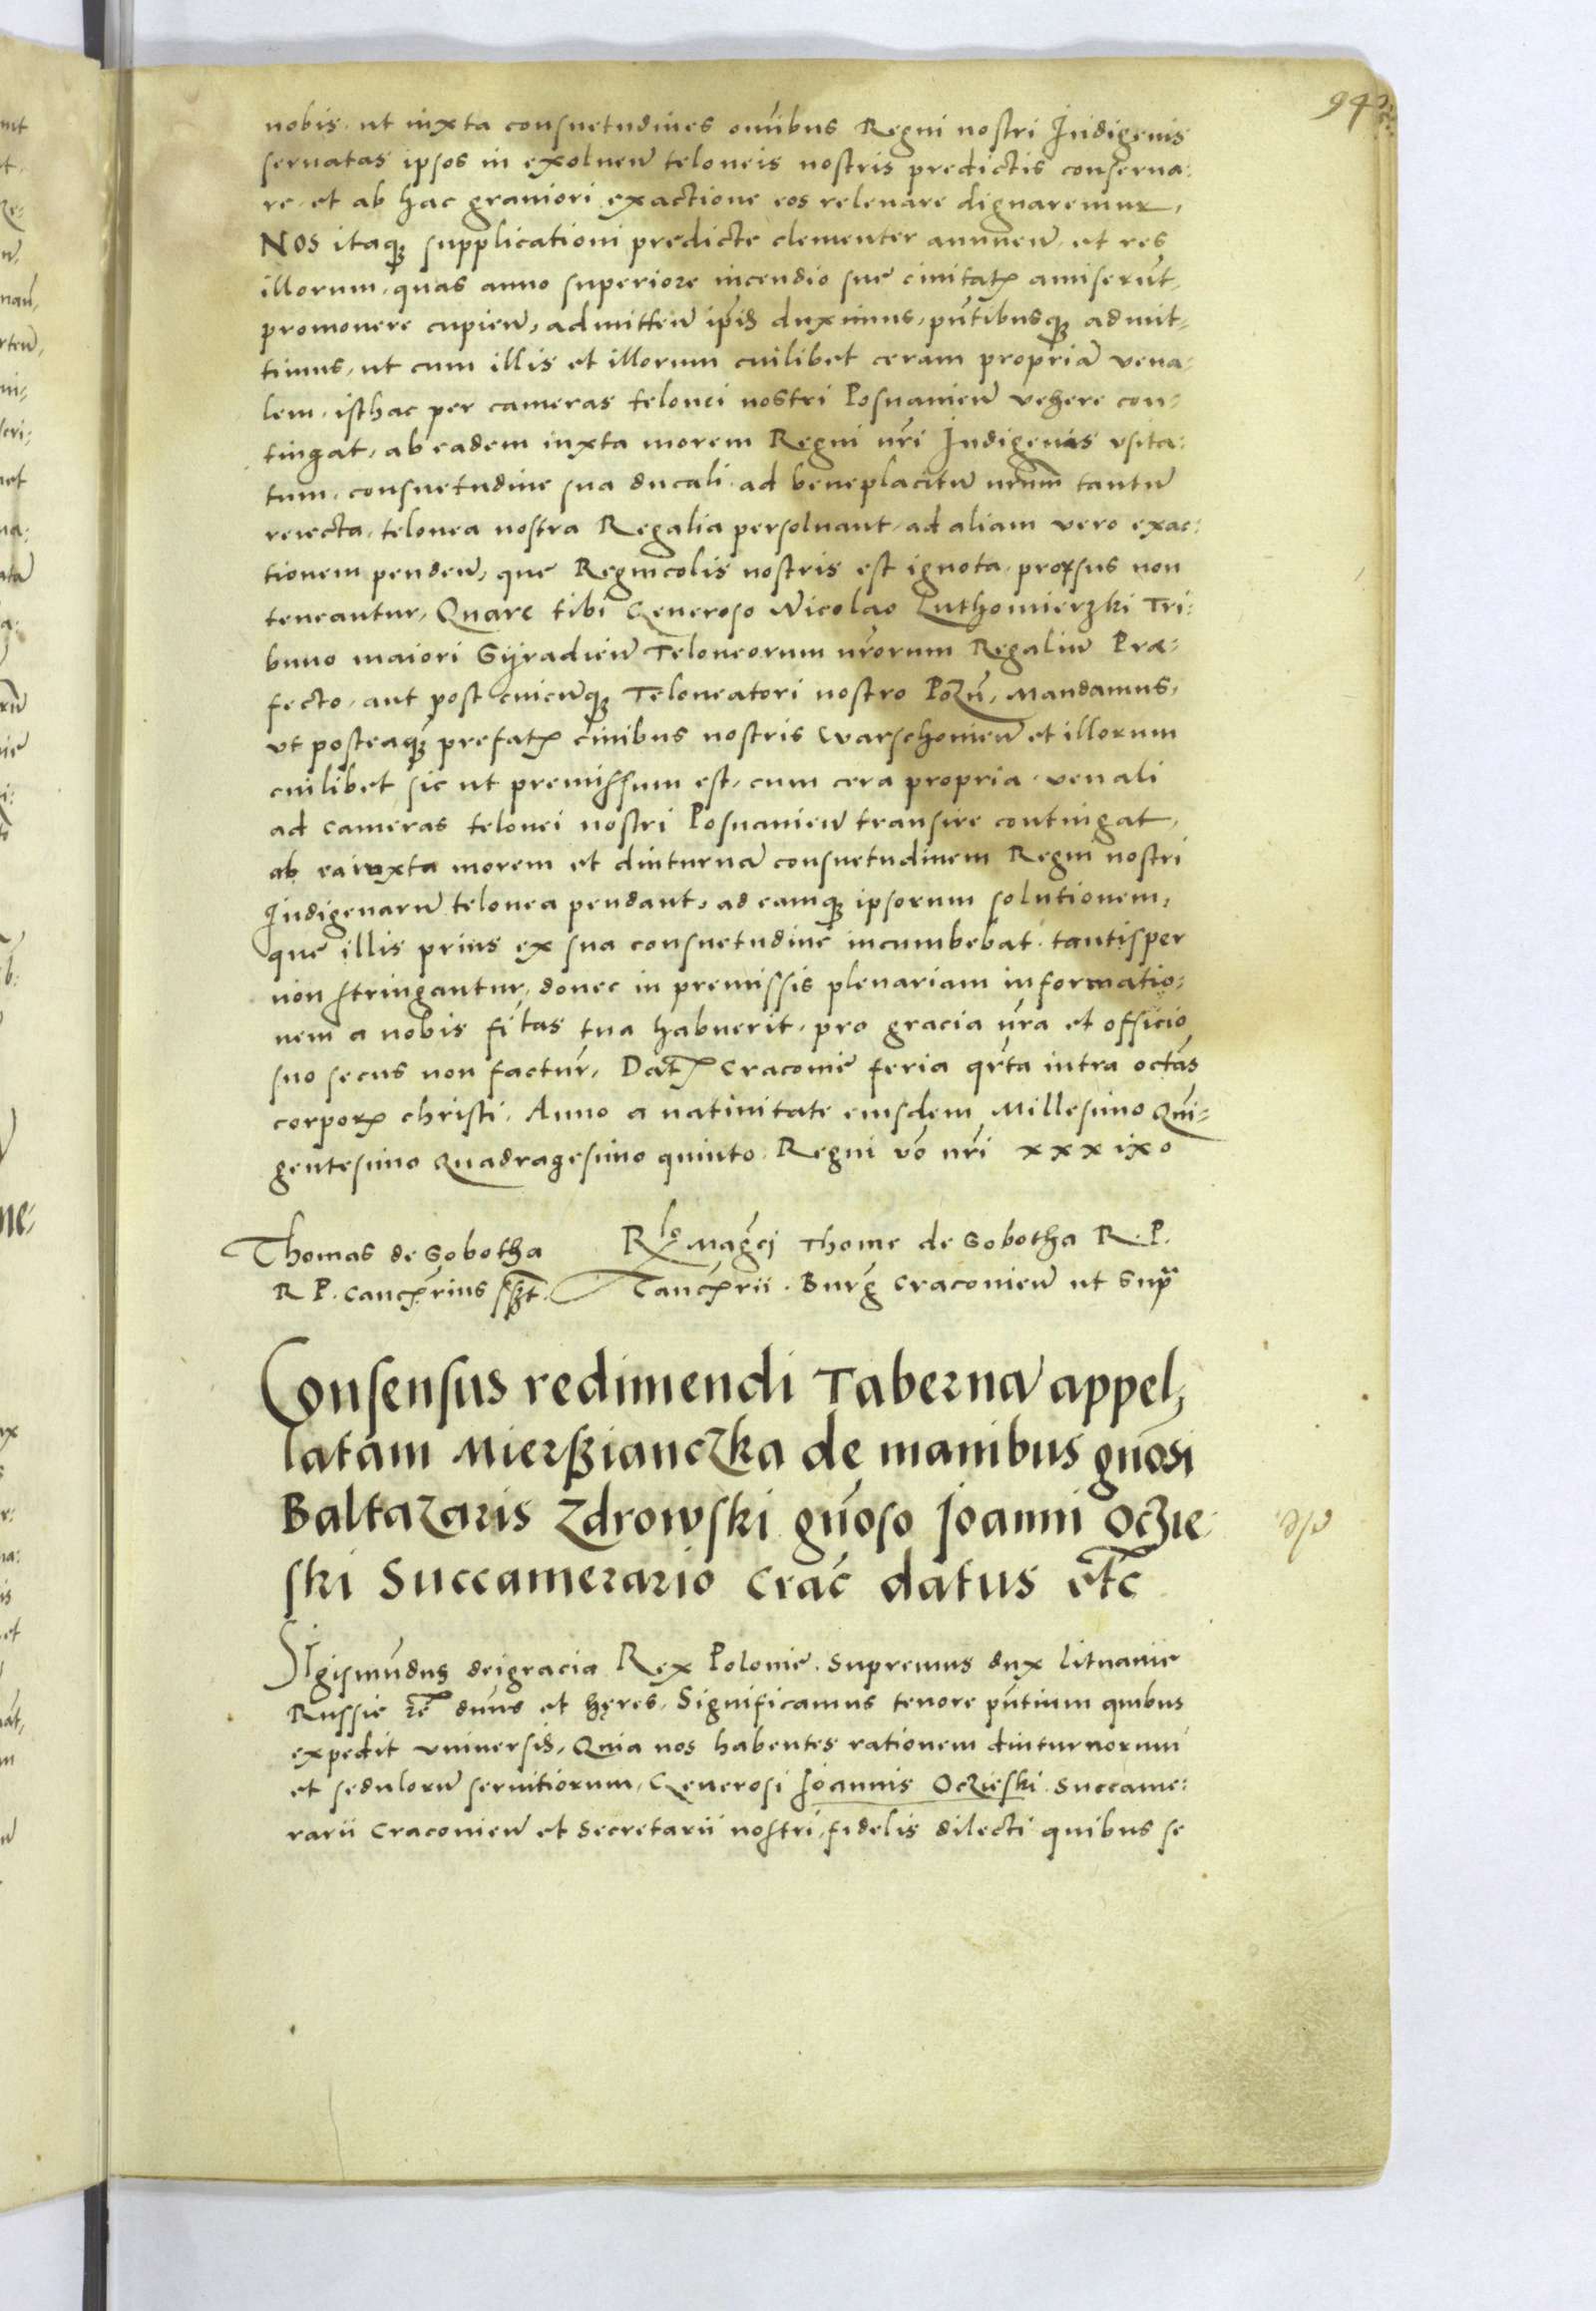 94
nobis, ut iuxta consuetudines omībus Regni nostri Indigenis
seruatas ipsos in exoluen̄ teloneis nostris predictis conserua:
re, et ab hac grauiori exactione eos releuare dignaremur,
NOS itaq̃ supplicationi predicte clementer annuen̄, et res
illorum, quas anno superiore incendio sue ciuitatꝭ amiserūt,
promouere cupien̄, admitten̄ ip̄is duximus, pn̄tibusq̃ admit-
timus, ut cum illis et illorum cuilibet ceram propriā vena:
lem, isthac per cameras telonei nostri Posnanien̄ vehere con-
tingat, ab eadem iuxta morem Regni nr̄i Indigenis vsita:
tum, consuetudine sua ducali, ad beneplacitū nr̄um tantū
reiecta, telonea nostra Regalia persoluant, ad aliam vero exac:
tionem penden̄, que Regnicolis nostris est ignota, prorsus non
teneantur, Quare tibi Generoso Nicolao Luthomierzki Tri:
buno maiori Syradien̄ Teloneorum nr̄orum Regaliū Præ-
fecto, aut post cuicunq̃ Teloneatori nostro Pozn̄, Mandamus,
vt posteaq̃ prefatꝭ ciuibus nostris Warschouien̄ et illorum
cuilibet sic ut premissum est, cum cera propria venali
ad cameras telonei nostri Posnanien̄ transire contingat,
ab ea iuxta morem et diuturnā consuetudinem Regni nostri
Indigenarū telonea pendant, ad eamq̃ ipsorum solutionem,
que illis prius ex sua consuetudine incumbebat, tantisper
non stringantur, donec in premissis plenariam informatio:
nem a nobis fi͂tas tua habuerit, pro gracia nr̄a et officio
suo secus non factur̄, Datꝭ Cracouie feria qr̄ta intra octās
corporꝭ christi, Anno a natiuitate eiusdem Millesimo Qui-
gentesimo Quadragesimo quinto, Regni vō nr̄i xxxixo
Thomas de Sobotha
R P. Cancꝭrius sszt.
Rlo Magc̄i Thome de Sobotha R. P.
Cancꝭrii, Burg̃ Cracouien̄ ut Supª
Consensus redimendi Tabernā appel-
latam Mierßianczka de manibus gn̄osi
Baltazaris Zdrowski gn̄oso Joanni Oczie-
ski Succamerario Crac̄ datus etc̄
SIgismūdus dei gracia Rex Polonie, Supremus dux Lituanie
Russie ꝛc̄ dn̄us et hęres, Significamus tenore pn̄tium quibus
expedit vniuersis, Quia nos habentes rationem diuturnorum
et sedulorū seruitiorum, Generosi Joannis Oczieski Succame:
rarii Cracouien̄ et Secretarii nostri, fidelis dilecti quibus se